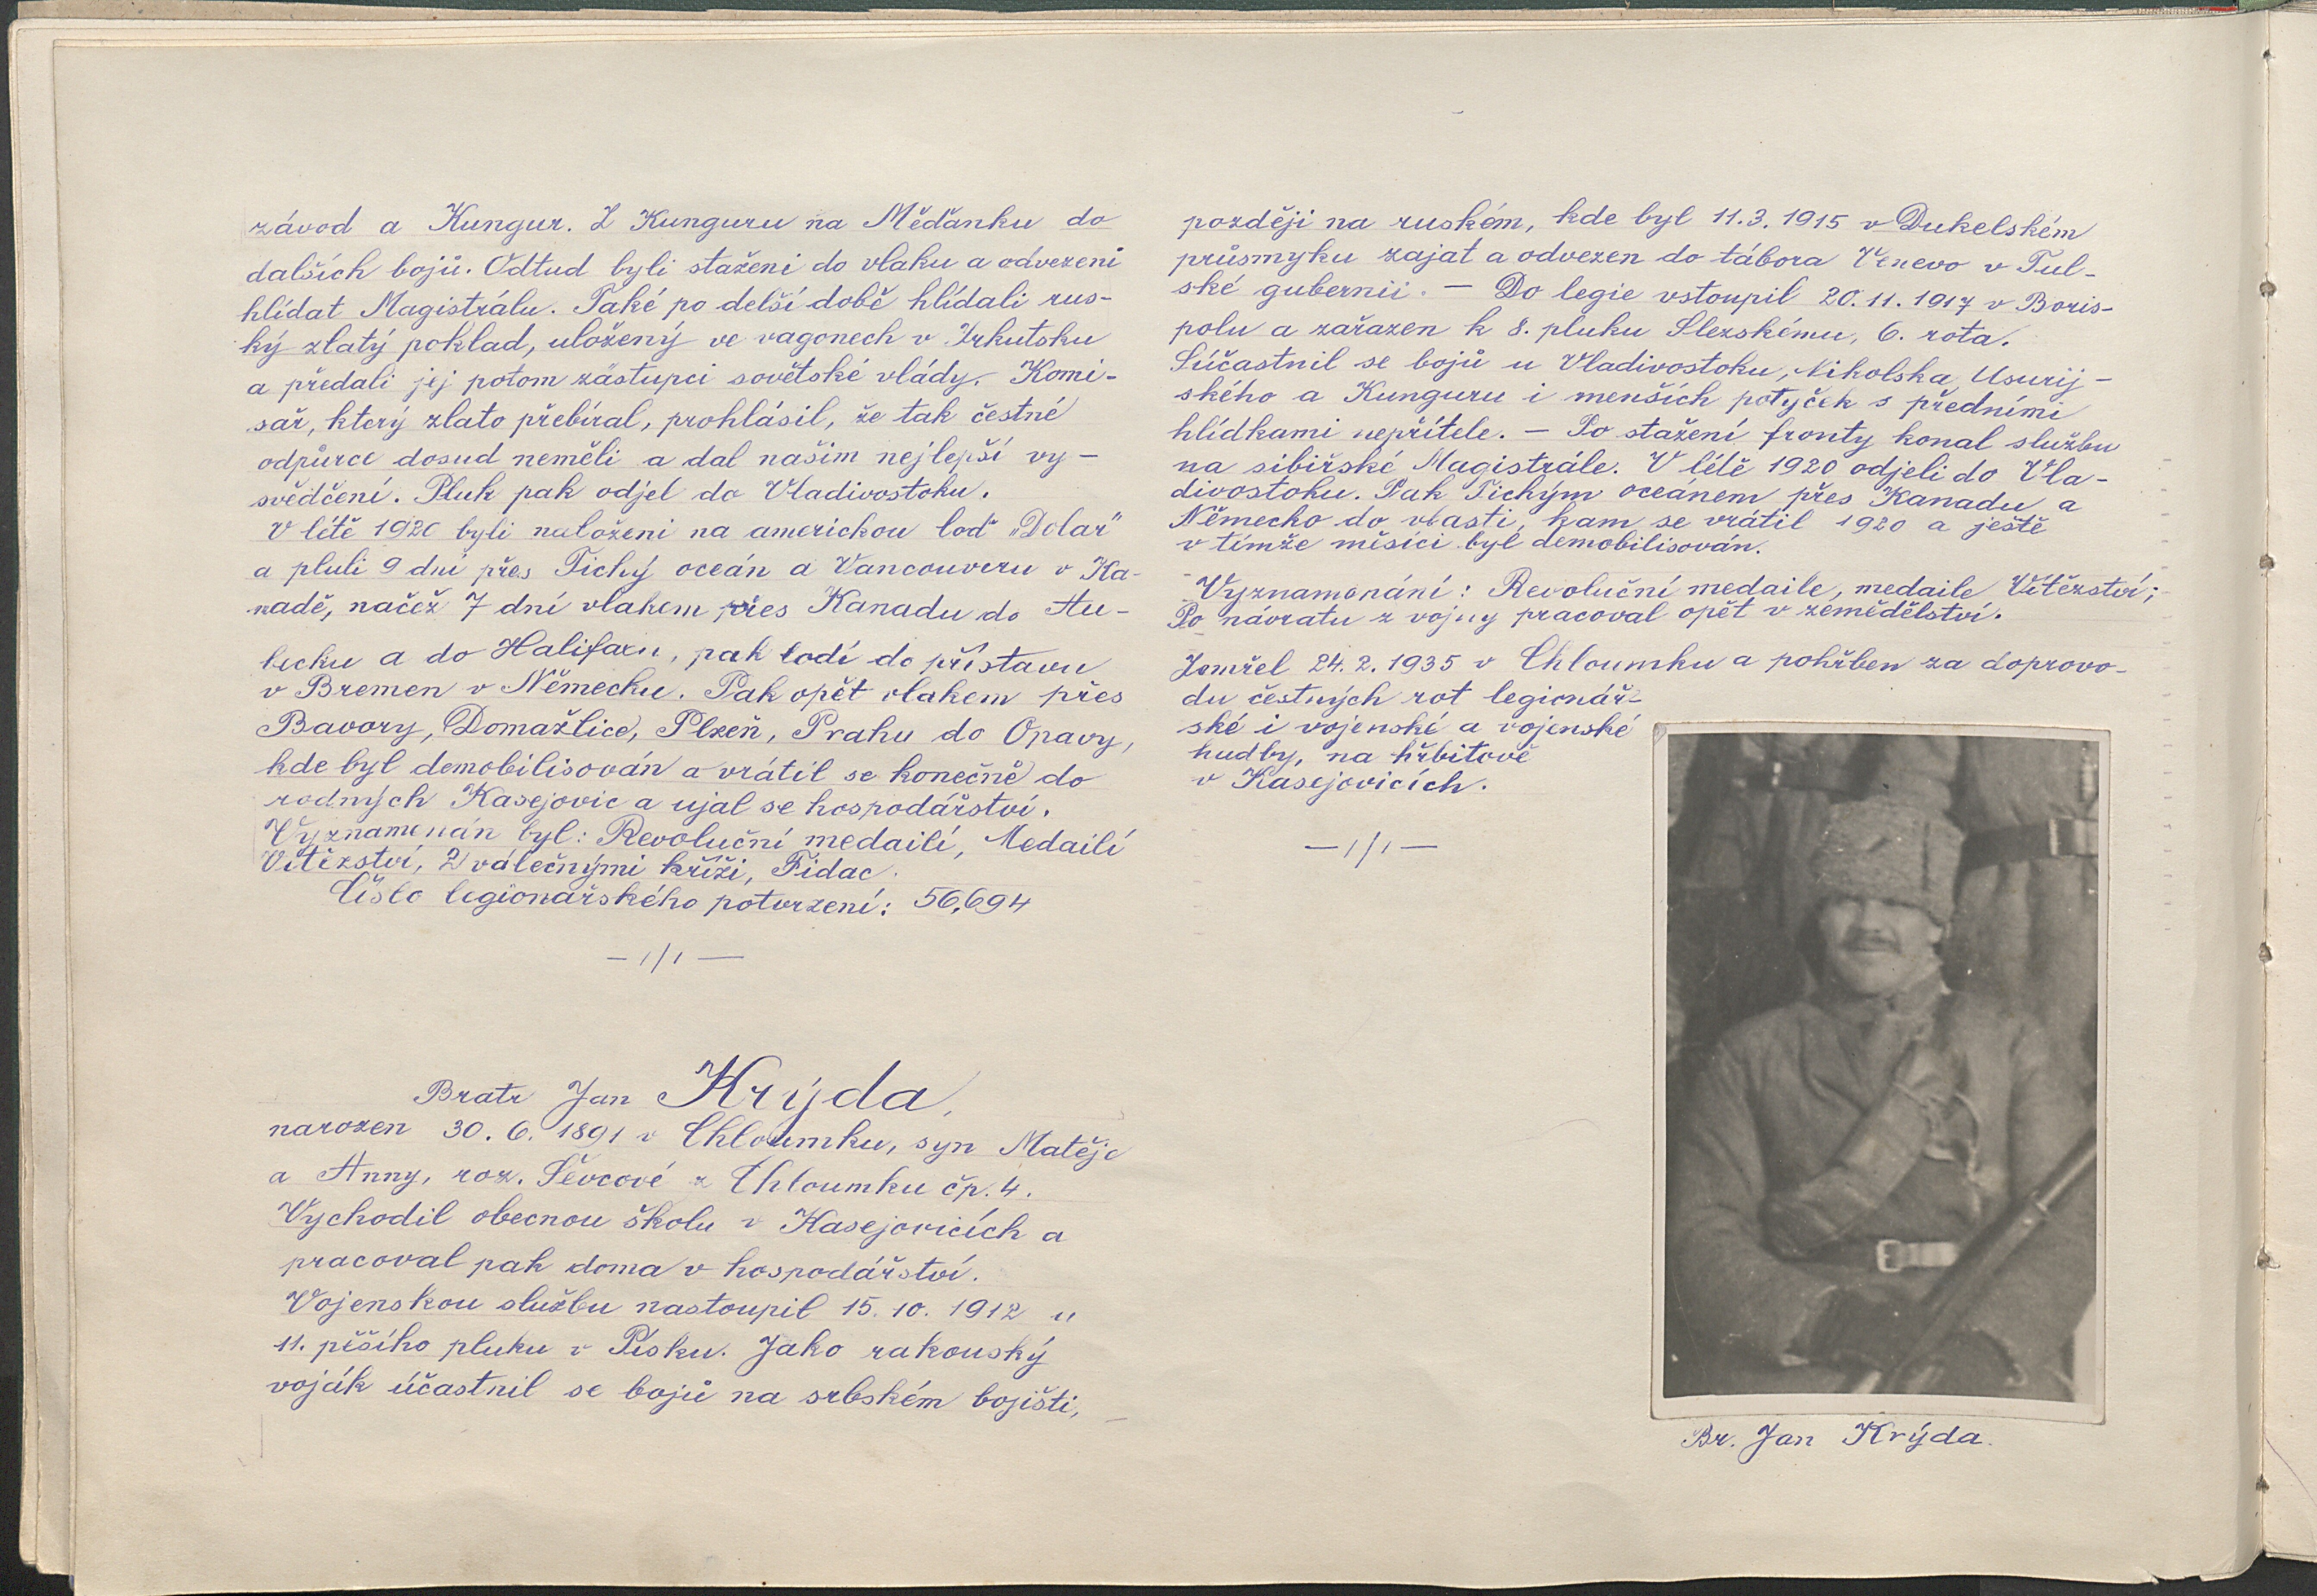 závod a Kungur. Z Kunguru na Měďanku do
dalších bojů. Odtud byli staženi do vlaku a odvezeni
hlídat Magistrálu. Také po delší době hlídali rus-
ký zlatý poklad, uložený ve vagonech v Irkutsku
a předali jej potom zástupci sovětské vlády. Komi-
sař, který zlato přebíral, prohlásil, že tak čestné
odpůrce dosud neměli a dal našim nejlepší vy-
svědčení. Pluk pak odjel do Vladivostoku.
V létě 1920 byli naloženi na americkou loď „Dolar"
a pluli 9 dní přes Tichý oceán a Vancouveru v Ka-
nadě, načež 7 dní vlakem přes Kanadu do Au-
becku a do Halifaxu, pak lodí do přístavu
v Bremen v Německu. Pak opět vlakem přes
Bavory, Domažlice, Plzeň, Prahu do Opavy,
kde byl demobilisován a vrátil se konečně do
rodných Kasejovic a ujal se hospodářství.
Vyznamenán byl: Revoluční medailí, Medailí
Vítězství, 2 válečnými kříži, Fidac.
Číslo legionářského potvrzení: 56,694
— 1/1 —
Bratr Jan Krýda,
narozen 30. 6. 1891 v Chloumku, syn Matěje
a Anny, roz. Ševcové z Chloumku čp. 4.
Vychodil obecnou školu v Kasejovicích a
pracoval pak doma v hospodářství.
Vojenskou službu nastoupil 15. 10. 1912 u
11. pěšího pluku v Písku. Jako rakouský
voják účastnil se bojů na srbském bojišti,
později na ruském, kde byl 11. 3. 1915 v Dukelském
průsmyku zajat a odvezen do tábora Venevo v Tul-
ské gubernii. — Do legie vstoupil 20. 11. 1917 v Boris-
polu a zařazen k 8. pluku Slezskému, 6. rota.
Súčastnil se bojů u Vladivostoku, Nikolska Usurij-
ského a Kunguru i menších potyček s předními
hlídkami nepřítele. — Po stažení fronty konal službu
na sibiřské Magistrále. V létě 1920 odjeli do Vla-
divostoku. Pak Tichým oceánem přes Kanadu a
Německo do vlasti, kam se vrátil 1920 a ještě
v tímže měsíci byl demobilisován.
Vyznamenání: Revoluční medaile, medaile Vítězství;
Po návratu z vojny pracoval opět v zemědělství.
Zemřel 24. 2. 1935 v Chloumku a pohřben za doprovo-
du čestných rot legionář-
ské i vojenské a vojenské
hudby, na hřbitově
v Kasejovicích.
— 1/1 —
Br. Jan Krýda.